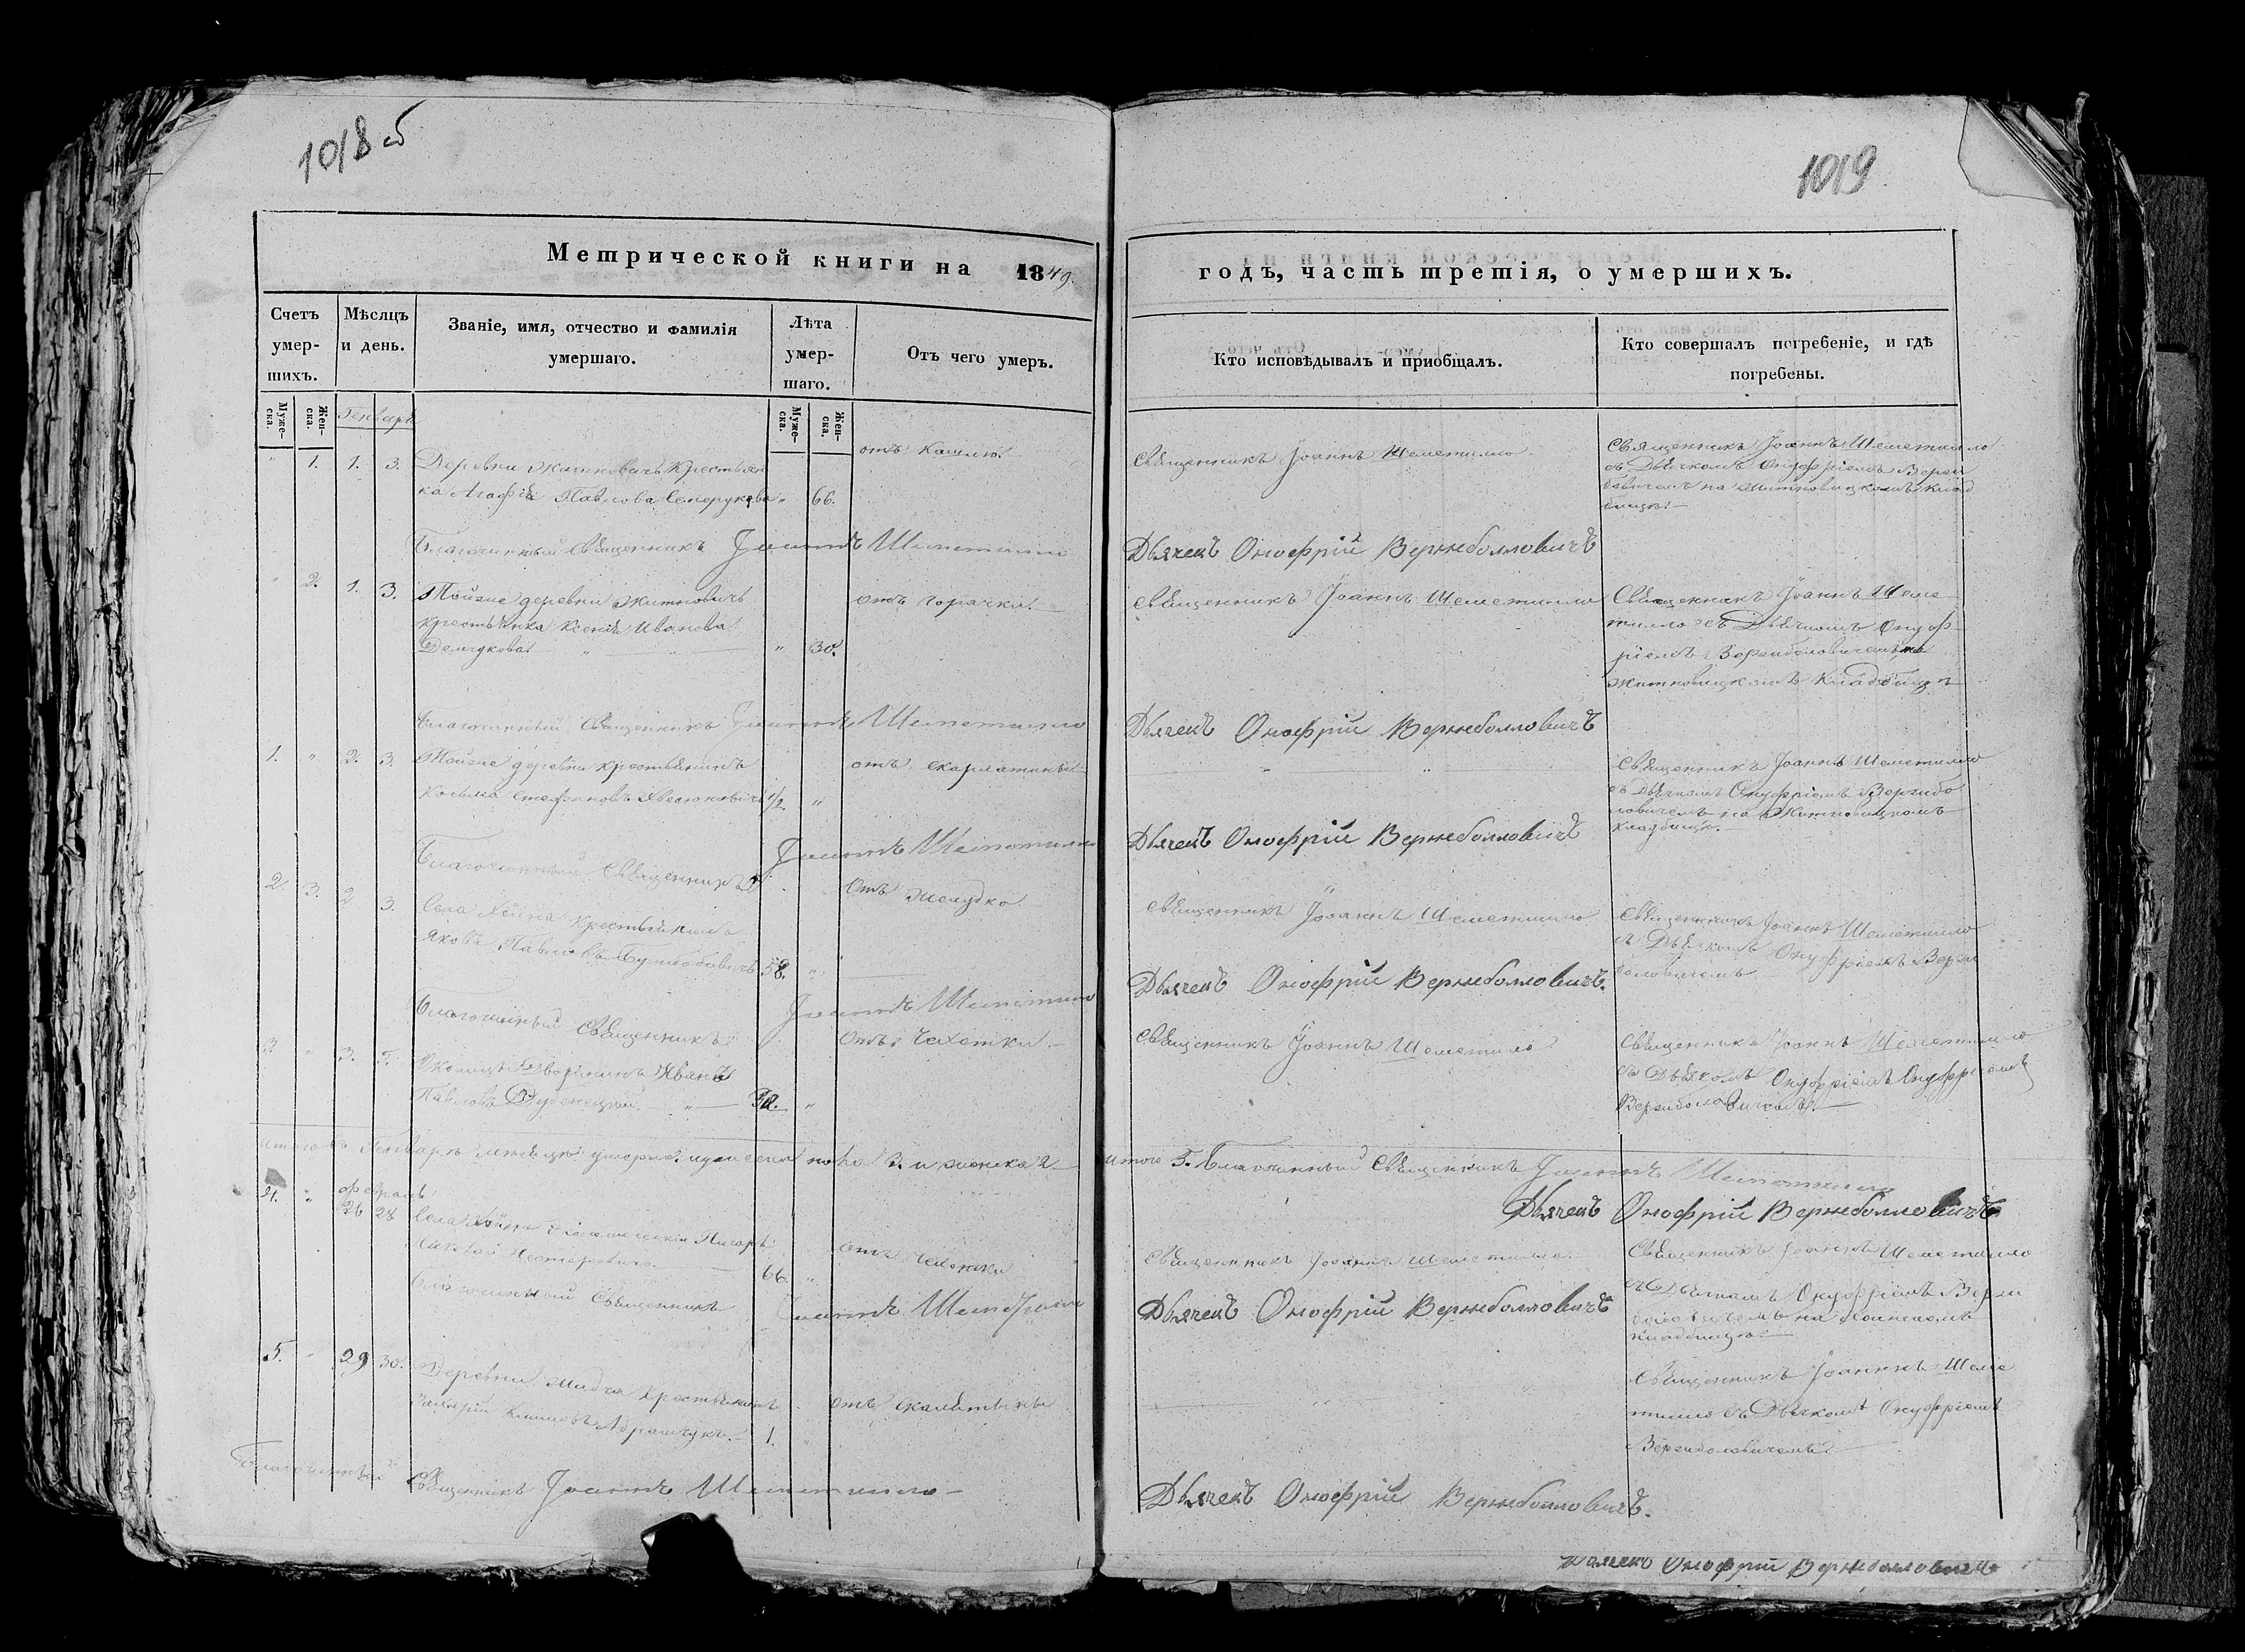 1018 об
1019
Метрической книги на 1849.
годъ, часть третія, о умершихъ.
Счетъ умер-
шихъ.
Мѣсяцъ
и день.
Званіе, имя, отчество и фамилія
умершаго.
Лѣта
умер-
шаго.
Отъ чего умеръ.
Кто исповѣдывалъ и приобщалъ.
Кто совершалъ погребеніе, и гдѣ
погребены.
Муже-
ска.
Жен-
ска.
Январь
Муже-
ска.
Жен-
ска.
" 1. 1. 3. Деревни Житновичъ Крестьян
ка Агафія Павлова " 66.
отъ кашлю.
Священникъ Іоаннъ Шеметилло
Священникъ Іоаннъ Шеметилло
съ Дьячкомъ Онуфріемъ Верзи
боловичемъ на Житновицкомъ клад
бищѣ.
Благочинный Священникъ Іоаннъ Шеметилло
Дьячекъ Онофрій Вержболловичъ
" 2. 1. 3. Тойже деревни Житновичъ
крестьянка Ксенія Иванова
Демчукова " 30.
отъ горячки.
Священникъ Іоаннъ Шеметилло
Священникъ Іоаннъ Шеме
тилло съ Дьячкомъ Онуф
ріемъ Верзиболовичемъ на
Житновицкомъ Кладбищѣ
Благочинный Священникъ Іоаннъ Шеметилло
Дьячекъ Онофрій Вержболловичъ
1. " 2. 3. Тойже деревни крестьянинъ
Косьма Стефановъ 1/2. "
отъ скарлатины
Священникъ Іоаннъ Шеметилло
съ Дьячкомъ Онуфріемъ Верзибо
ловичемъ на Житновицкомъ
кладбищѣ.
Благочинный Священникъ Іоаннъ Шеметилло
Дьячекъ Онофрій Вержболловичъ
2. 3. 2. 3. Села Хойна крестьянинъ
Яковъ Павловъ 58. "
отъ желудка
Священникъ Іоаннъ Шеметилло
Священникъ Іоаннъ Шеметилло
съ Дьячкомъ Онуфріемъ Верзи
боловичемъ
Благочинный Священникъ Іоаннъ Шеметилло
Дьячекъ Онофрій Вержболловичъ.
3. " 3. 5. Дворянинъ Иванъ
Павловъ "
отъ чахотки
Священникъ Іоаннъ Шеметилло
Священникъ Іоаннъ Шеметилло
съ Дьячкомъ Онуфріемъ Онуфріемъ
Верзиболовичемъ.
Итого въ Январѣ мѣсяцѣ умерло мужеска пола 3. и женска 2
итого 5. Благочинный Священникъ Іоаннъ Шеметилло
Дьячекъ Онофрій Вержболловичъ
4. " Февраль
26 28 Села Хойна Писарь
Нестеровичъ. 66. "
отъ чахотки
Священникъ Іоаннъ Шеметилло.
Священникъ Іоаннъ Шеметилло
съ Дьячкомъ Онуфріемъ Верзи
боловичемъ на Хоинскомъ
кладбищѣ
Благочинный Священникъ Іоаннъ Шеметилло
Дьячекъ Онофрій Вержболловичъ
5. " 29 30. Деревни крестьянинъ
Климовъ Абрамчукъ. 1.
отъ
Священникъ Іоаннъ Шеме
тилло съ Дьячкомъ Онуфріемъ
Верзиболовичемъ.
Благочинный Священникъ Іоаннъ Шеметилло
Дьячекъ Онофрій Вержболловичъ.
Дьячекъ Онофрій Вержболловичъ